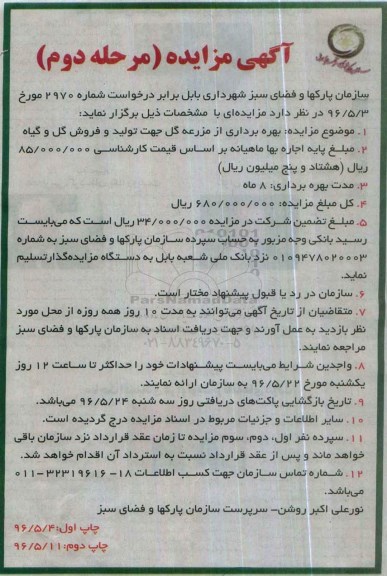 آگهی مزایده (مرحله دوم)
سازمان پارکها و فضای سبز شهرداری بابل برابر درخواست شماره ۲۹۷۰ مورخ
۹۶/۵/۳ در نظر دارد مزایده‌ای با مشخصات ذیل برگزار نماید:
۱. موضوع مزایده: بهره برداری از مزرعه گل جهت تولید و فروش گل و گیاه
۲. مبلغ پایه اجاره بها ماهیانه بر اساس قیمت کارشناسی ۸۵/۰۰۰/۰۰۰
ریال (هشتاد و پنج میلیون ریال)
۳. مدت بهره برداری: ۸ ماه
۴. کل مبلغ مزایده: ۶۸۰/۰۰۰/۰۰۰ ریال
۵. مبلغ تضمین شرکت در مزایده ۳۴/۰۰۰/۰۰۰ ریال است که می‌بایست
رسید بانکی وجه مزبور به حساب سپرده سازمان پارکها و فضای سبز به شماره
۰۱۰۹۴۷۸۰۲۰۰۰۳ نزد بانک ملی شعبه بابل به دستگاه مزایده‌گذارتسلیم
نماید.
۶. سازمان در رد یا قبول پیشنهاد مختار است.
ParsNamadData
۷. متقاضیان از تاریخ آگهی می‌توانند به مدت ۱۰ روز همه روزه از محل مورد
نظر بازدید به عمل آورند و جهت دریافت اسناد به سازمان پارکها و فضای سبز
مراجعه نمایند.
۰۲۱-۸۸۳۴۹۶۷۰-۵
۸. واجدین شرایط می‌بایست پیشنهادات خود را حداکثر تا ساعت ۱۲ روز
یکشنبه مورخ ۹۶/۵/۲۲ به سازمان ارائه نمایند.
۹. تاریخ بازگشایی پاکت‌های دریافتی روز سه شنبه ۹۶/۵/۲۴ می‌باشد.
۱۰. سایر اطلاعات و جزئیات مربوط در اسناد مزایده درج گردیده است.
۱۱. سپرده نفر اول، دوم، سوم مزایده تا زمان عقد قرارداد نزد سازمان باقی
خواهد ماند و پس از عقد قرارداد نسبت به استرداد آن اقدام خواهد شد.
۱۲. شماره تماس سازمان جهت کسب اطلاعات ۱۸- ۳۲۳۱۹۶۱۶-۰۱۱
می‌باشد.
نورعلی اکبر روشن- سرپرست سازمان پارکها و فضای سبز
چاپ اول:۹۶/۵/۴
چاپ دوم:۹۶/۵/۱۱